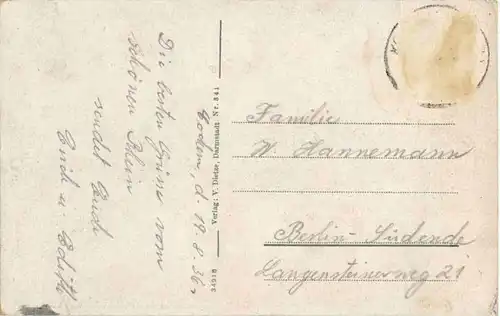 Bochum, d. 19.8.36.
Die besten Grüsse vom
schönen Rhein
sendet Euch
Erich u. Edith
Verlag: V. Dieter, Darmstadt Nr. 841
34918
Familie
W. Hannemann
Berlin-Südende
Langensteinerweg 21